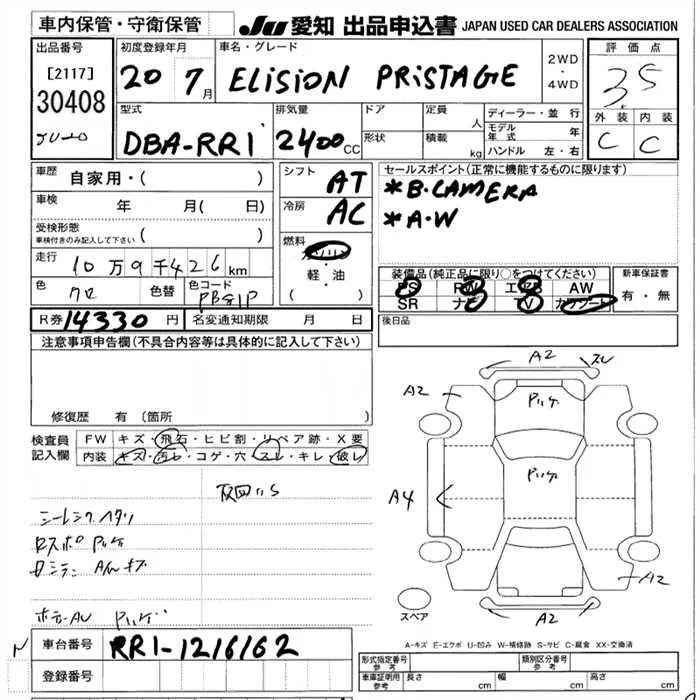 車内保管・守衛保管
JU 愛知 出品申込書 JAPAN USED CAR DEALERS ASSOCIATION
出品番号
[2117]
30408
初度登録年月
20 7月
車名・グレード
ELISION PRISTAGE
2WD
・
4WD
評価点
3.5
外装 内装
C C
型式
DBA-RR1
排気量
2400cc
ドア
形状
定員 人
積載 kg
ディーラー・並行
モデル年式 年
ハンドル 左・右
車歴 自家用・( )
車検 年 月( 日)
受検形態
車検付きのみ記入して下さい ( )
走行 10万9千426km
色 クロ 色替 色コード PB81P
シフト AT
冷房 AC
燃料
ガソリン
軽・油
( )
セールスポイント(正常に機能するものに限ります)
*B.CAMERA
*A・W
装備品(純正品に限り○をつけてください)
PS PW エアB AW
SR ナビ TV カワシート
新車保証書
有・無
R券 14330円 名変通知期限 月 日
後日品
注意事項申告欄(不具合内容等は具体的に記入して下さい)
修復歴 有(箇所 )
検査員記入欄
FW キズ・飛石・ヒビ割・リペア跡・X要
内装 キズ・汚レ・コゲ・穴・スレ・キレ・破レ
シートシワヘタリ
A2
スレ
A2
A4
A2
A2
スペア
A-キズ E-エクボ U-凹み W-補修跡 S-サビ C-腐食 XX-交換済
車台番号 RR1-1216162
登録番号
形式指定番号 参考
類別区分番号 参考
車庫証明用 参考 長さ cm 幅 cm 高さ cm